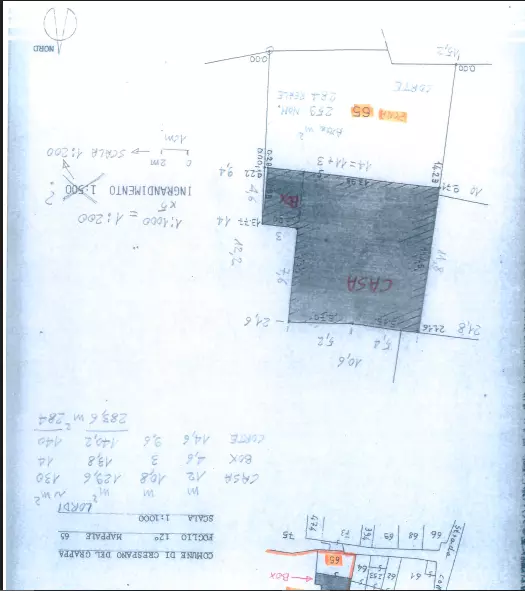 COMUNE DI CRESPANO DEL GRAPPA
FOGLIO 12° MAPPALE 65
SCALA 1:1000
LORDI
m m m² ~ m²
CASA 12 10,8 129,6 130
BOX 4,6 3 13,8 14
CORTE 14,6 9,6 140,2 140
283,6 m² 284
Strada
66
68
69
394
721
474
75
65
BOX
64
253
62
61
10,6
5,4
5,2
21,8
21,16
21,6
CASA
11,8
7,6
12,2
3
BOX
13,77 14
4,6
9,22 9,4
10 9,71
14,29
14 = 11 + 3
0,20
0,00
1:1000 = 1:200
x5
INGRANDIMENTO 1:500 ?
SCALA 1:200
0 2m
1cm
AREA m²
MAPP 65 253 NOM.
284 REALE
CORTE
0.00
0.00
15,2
NORD